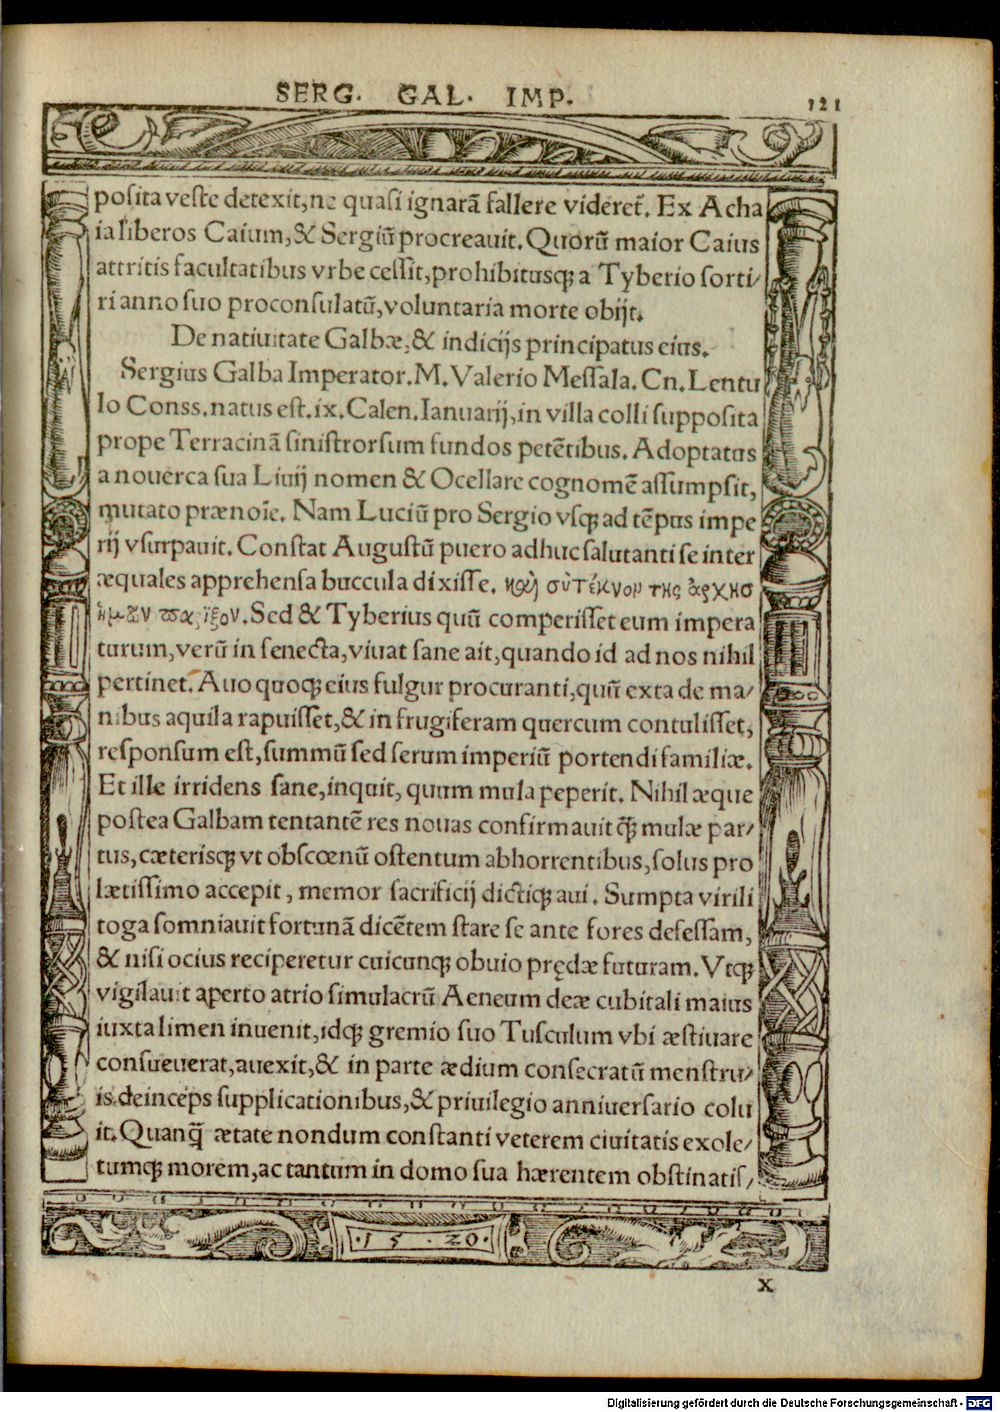 SERG. GAL. IMP.
121
posita veste detexit, ne quasi ignarā fallere videret᷑. Ex Acha
ia liberos Caium, & Sergiū procreauit. Quorū maior Caius
attritis facultatibus vrbe cessit, prohibitusq; a Tyberio sorti/
ri anno suo proconsulatū, voluntaria morte obijt.
De natiuitate Galbæ, & indicijs principatus eius.
Sergius Galba Imperator. M. Valerio Messala. Cn. Lentu
lo Conss. natus est. ix. Calen. Ianuarij, in villa colli supposita
prope Terracinā sinistrorsum fundos petētibus. Adoptatus
a nouerca sua Liuij nomen & Ocellare cognomē assumpsit,
mutato prænoīe. Nam Luciū pro Sergio vsq; ad tēpus impe
rij vsurpauit. Constat Augustū puero adhuc salutanti se inter
æquales apprehensa buccula dixisse. καὶ σὺ τέκνον της ἀρχησ
ἡμῶν παρατρώξῃ. Sed & Tyberius quū comperisset eum impera
turum, verū in senecta, viuat sane ait, quando id ad nos nihil
pertinet. Auo quoq; eius fulgur procuranti, quū exta de ma/
nibus aquila rapuisset, & in frugiferam quercum contulisset,
responsum est, summū sed serum imperiū portendi familiæ.
Et ille irridens sane, inquit, quum mula peperit. Nihil æque
postea Galbam tentantē res nouas confirmauit q̄ȝ mulæ par/
tus, cæterisq; vt obscœnū ostentum abhorrentibus, solus pro
lætissimo accepit, memor sacrificij dictiq; aui. Sumpta virili
toga somniauit fortunā dicētem stare se ante fores defessam,
& nisi ocius reciperetur cuicunq; obuio prędæ futuram. Vtq;
vigilauit aperto atrio simulacrū Aeneum deæ cubitali maius
iuxta limen inuenit, idq; gremio suo Tusculum vbi æstiuare
consueuerat, auexit, & in parte ædium consecratū menstru/
is deinceps supplicationibus, & priuilegio anniuersario colu
it. Quanq̄ȝ ætate nondum constanti veterem ciuitatis exole/
tumq; morem, ac tantum in domo sua hærentem obstinatis/
·15·20·
X
Digitalisierung gefördert durch die Deutsche Forschungsgemeinschaft - DFG